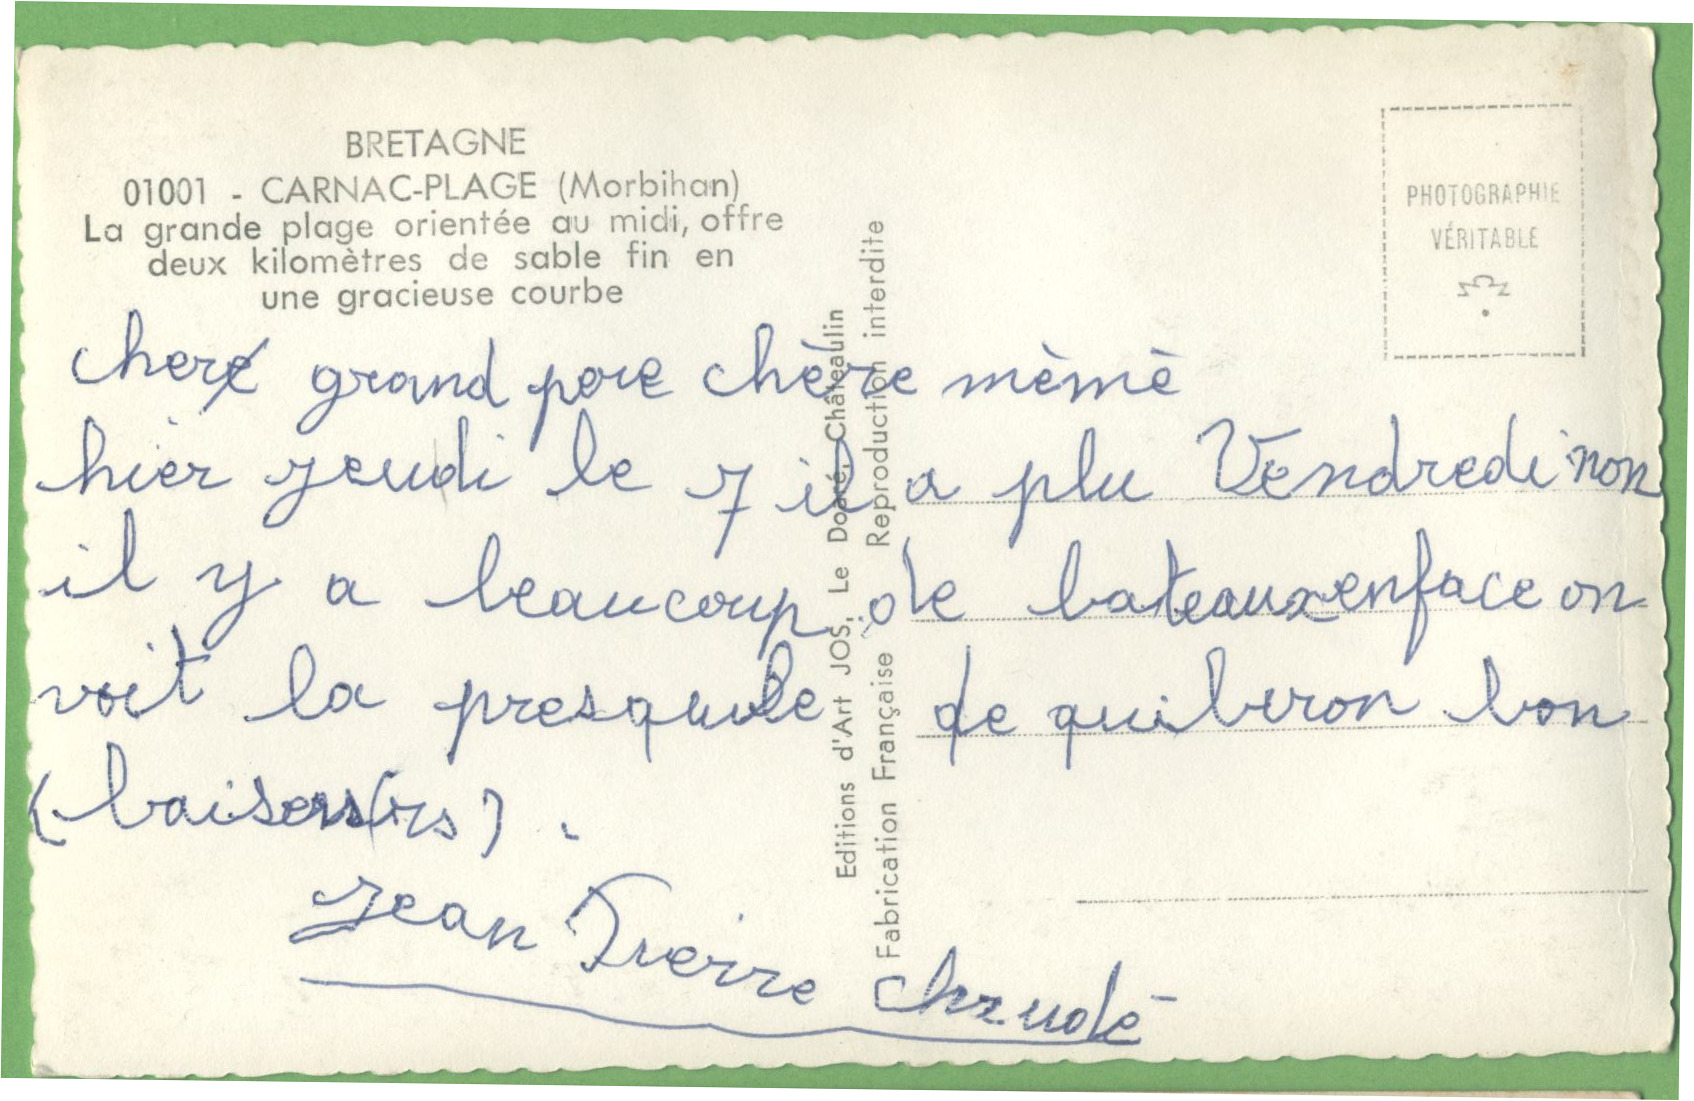 BRETAGNE
01001 - CARNAC-PLAGE (Morbihan)
La grande plage orientée au midi, offre
deux kilomètres de sable fin en
une gracieuse courbe
PHOTOGRAPHIE
VÉRITABLE
Editions d'Art JOS, Le Doaré, Châteaulin
Fabrication Française Reproduction interdite
cher grand pere chère mèmè
hier jeudi le 7 il a plu Vendredi non
il y a beaucoup de bateaux enface on
voit la de quiberon bon
(baisers(rs).
Jean Pierre